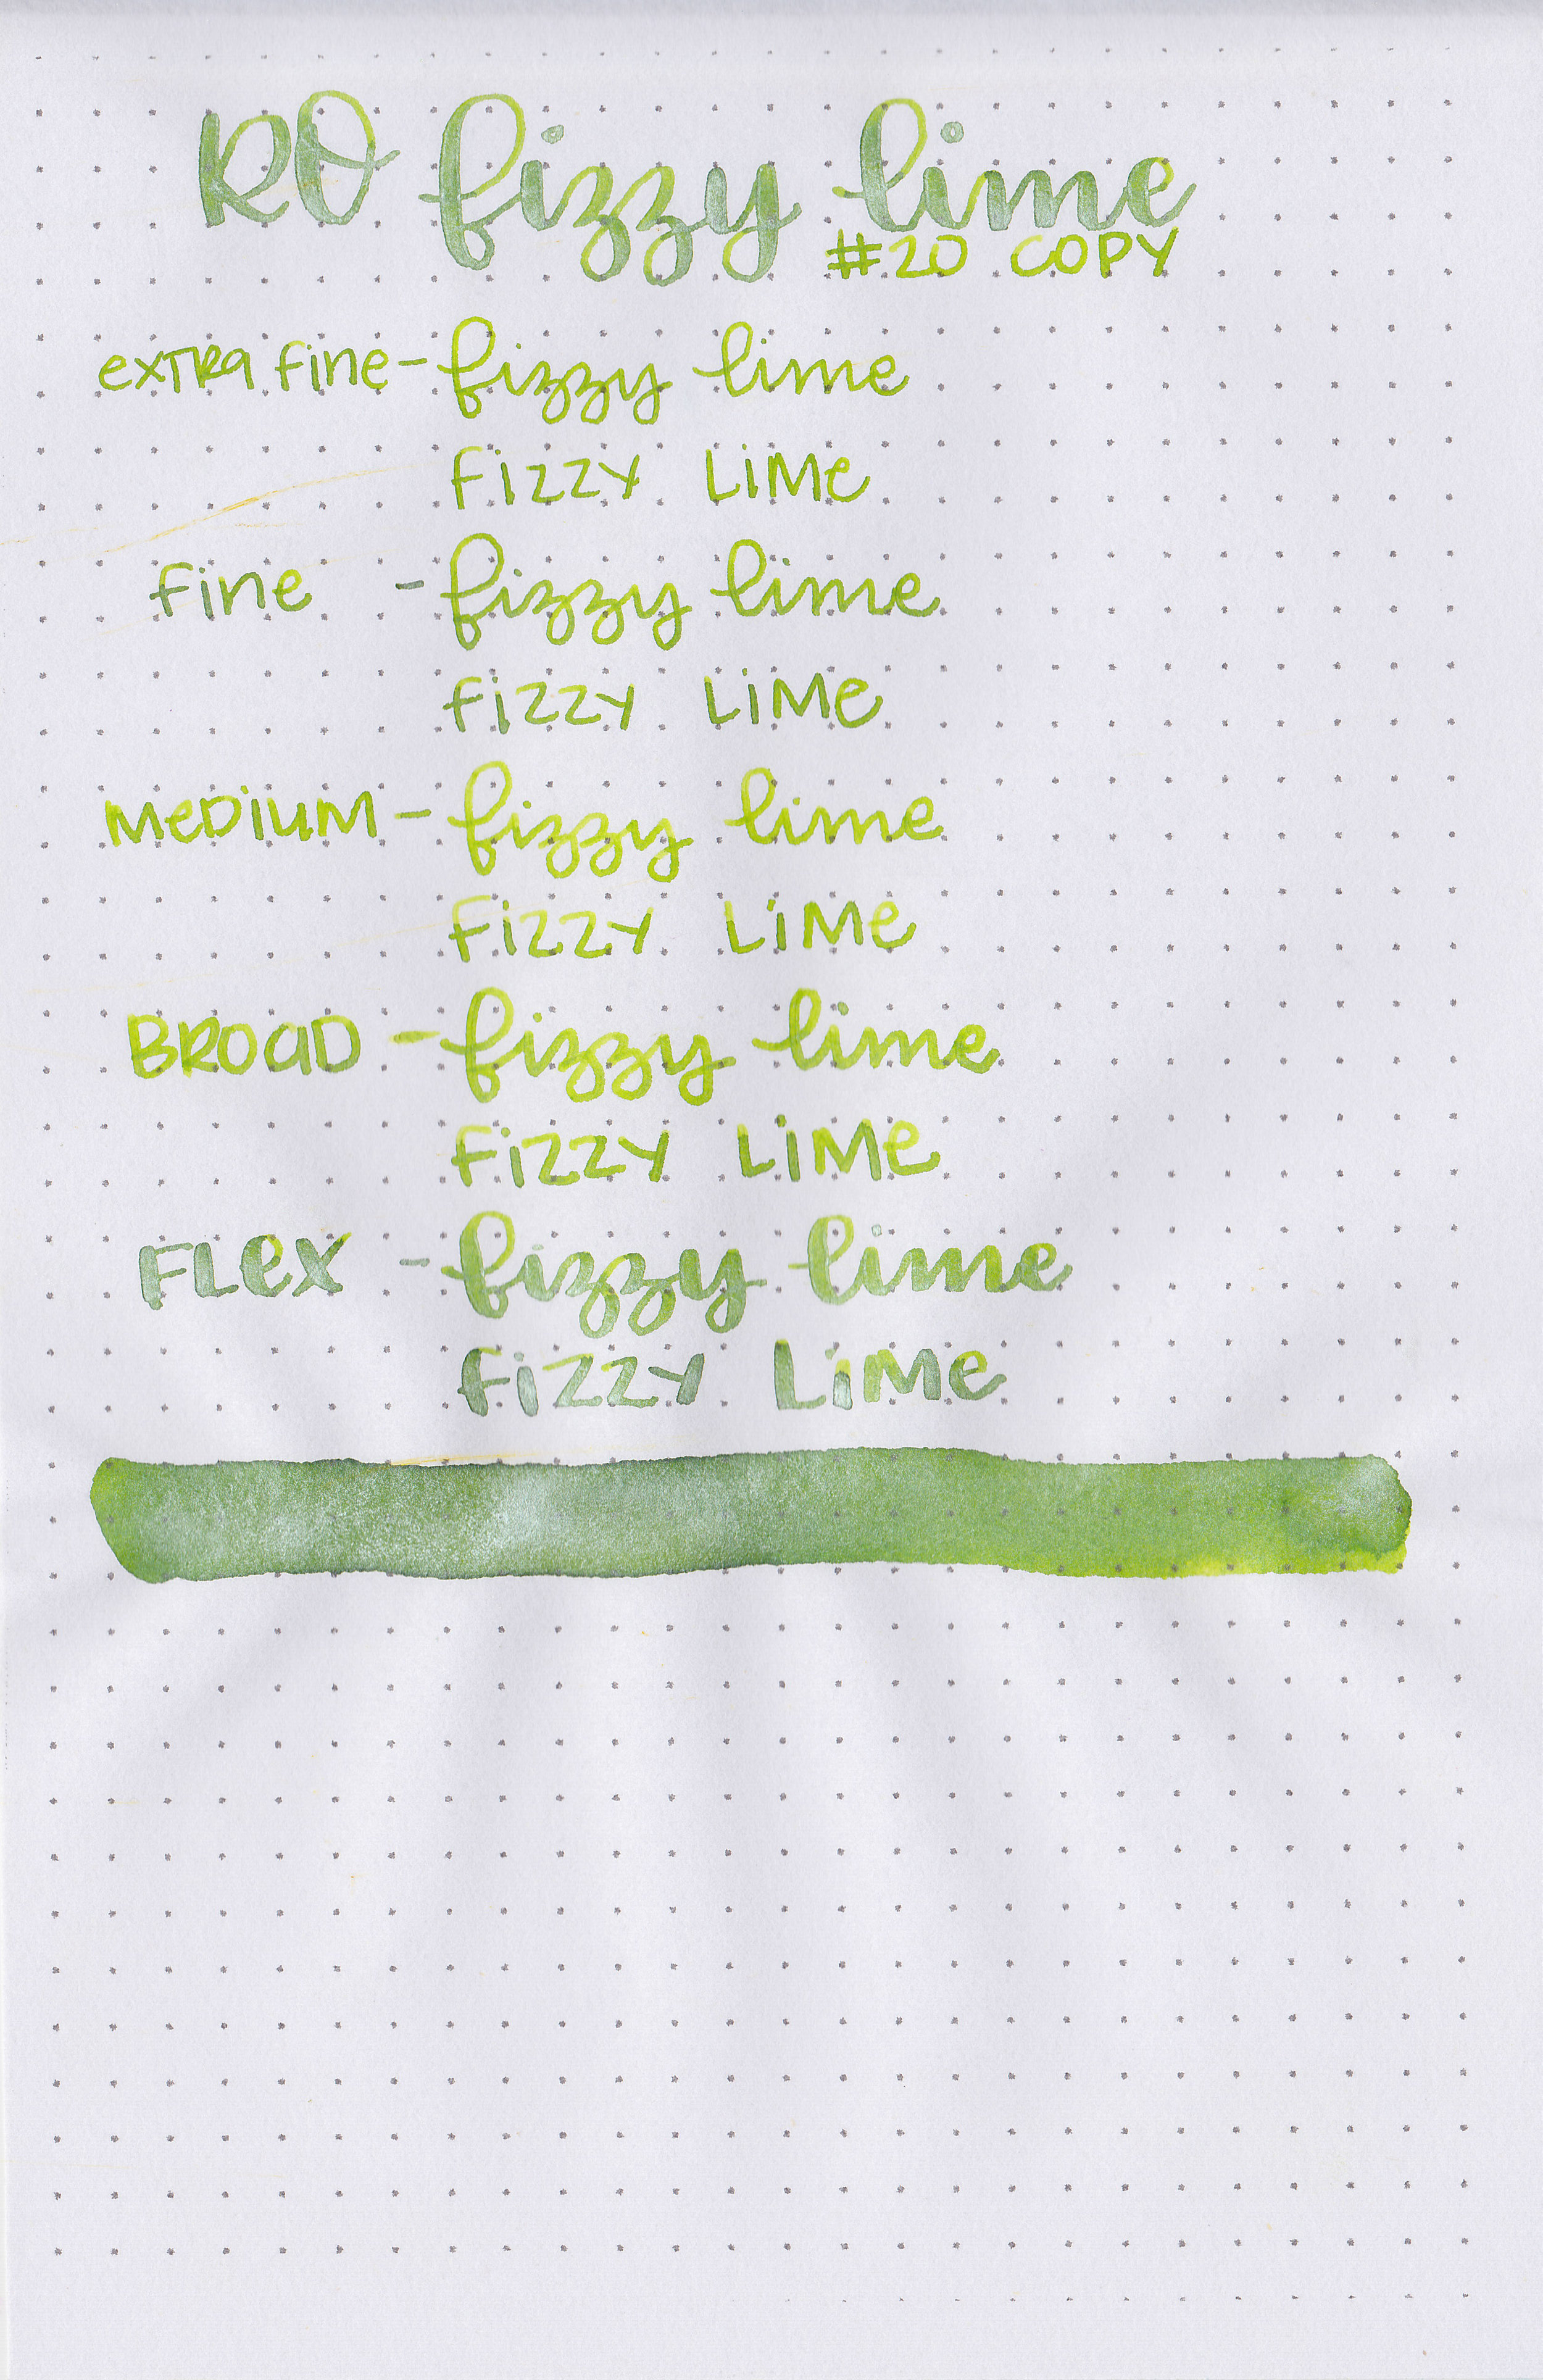 RO fizzy lime
#20 COPY
exTRa fine - fizzy lime
fizzy LiMe
fine - fizzy lime
fizzy LiMe
MeDiuM - fizzy lime
fizzy LiMe
BROaD - fizzy lime
fizzy LiMe
FLex - fizzy lime
fizzy LiMe